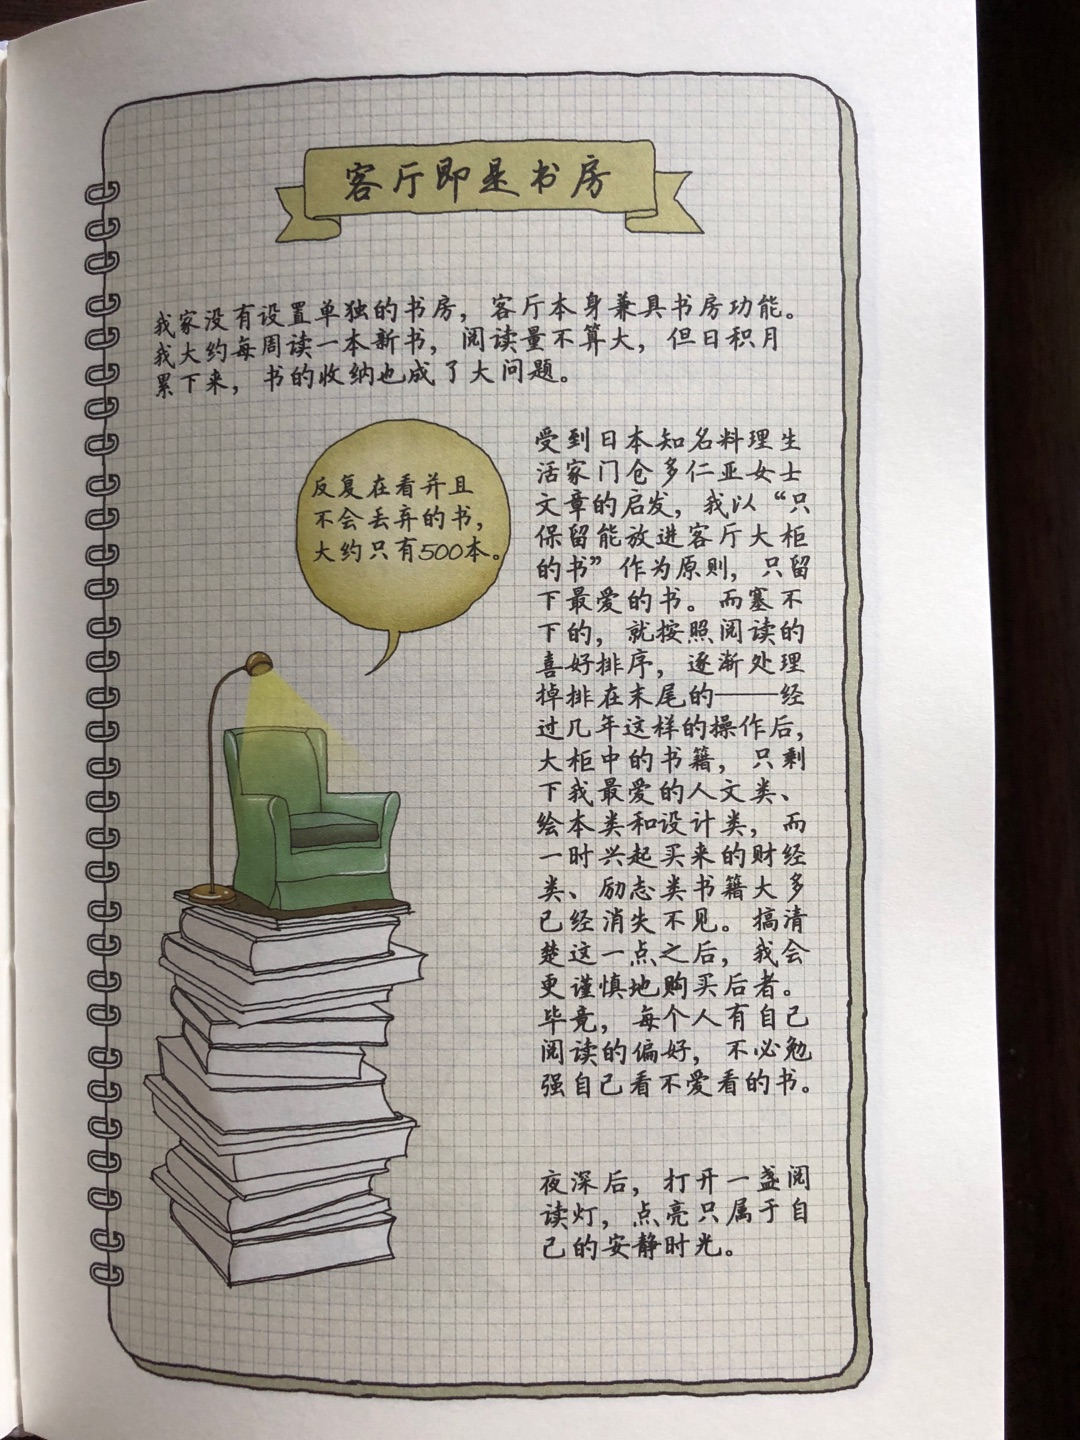 客厅即是书房
我家没有设置单独的书房，客厅本身兼具书房功能。
我大约每周读一本新书，阅读量不算大，但日积月
累下来，书的收纳也成了大问题。
反复在看并且
不会丢弃的书，
大约只有500本。
受到日本知名料理生
活家门仓多仁亚女士
文章的启发，我以“只
保留能放进客厅大柜
的书”作为原则，只留
下最爱的书。而塞不
下的，就按照阅读的
喜好排序，逐渐处理
掉排在末尾的——经
过几年这样的操作后，
大柜中的书籍，只剩
下我最爱的人文类、
绘本类和设计类，而
一时兴起买来的财经
类、励志类书籍大多
已经消失不见。搞清
楚这一点之后，我会
更谨慎地购买后者。
毕竟，每个人有自己
阅读的偏好，不必勉
强自己看不爱看的书。
夜深后，打开一盏阅
读灯，点亮只属于自
己的安静时光。